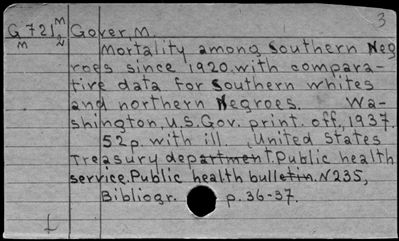 3
G 721 M/2 Gover, M.
M
Mortality among Southern Neg
roes since 1920, with compara-
tive data for Southern whites
and northern Negroes. Wa-
shington, U.S. Gov. print. off., 1937.
52p. with ill. (United States
Treasury department. Public health
service. Public health bulletin. N235,
Bibliogr. p. 36-37.
L